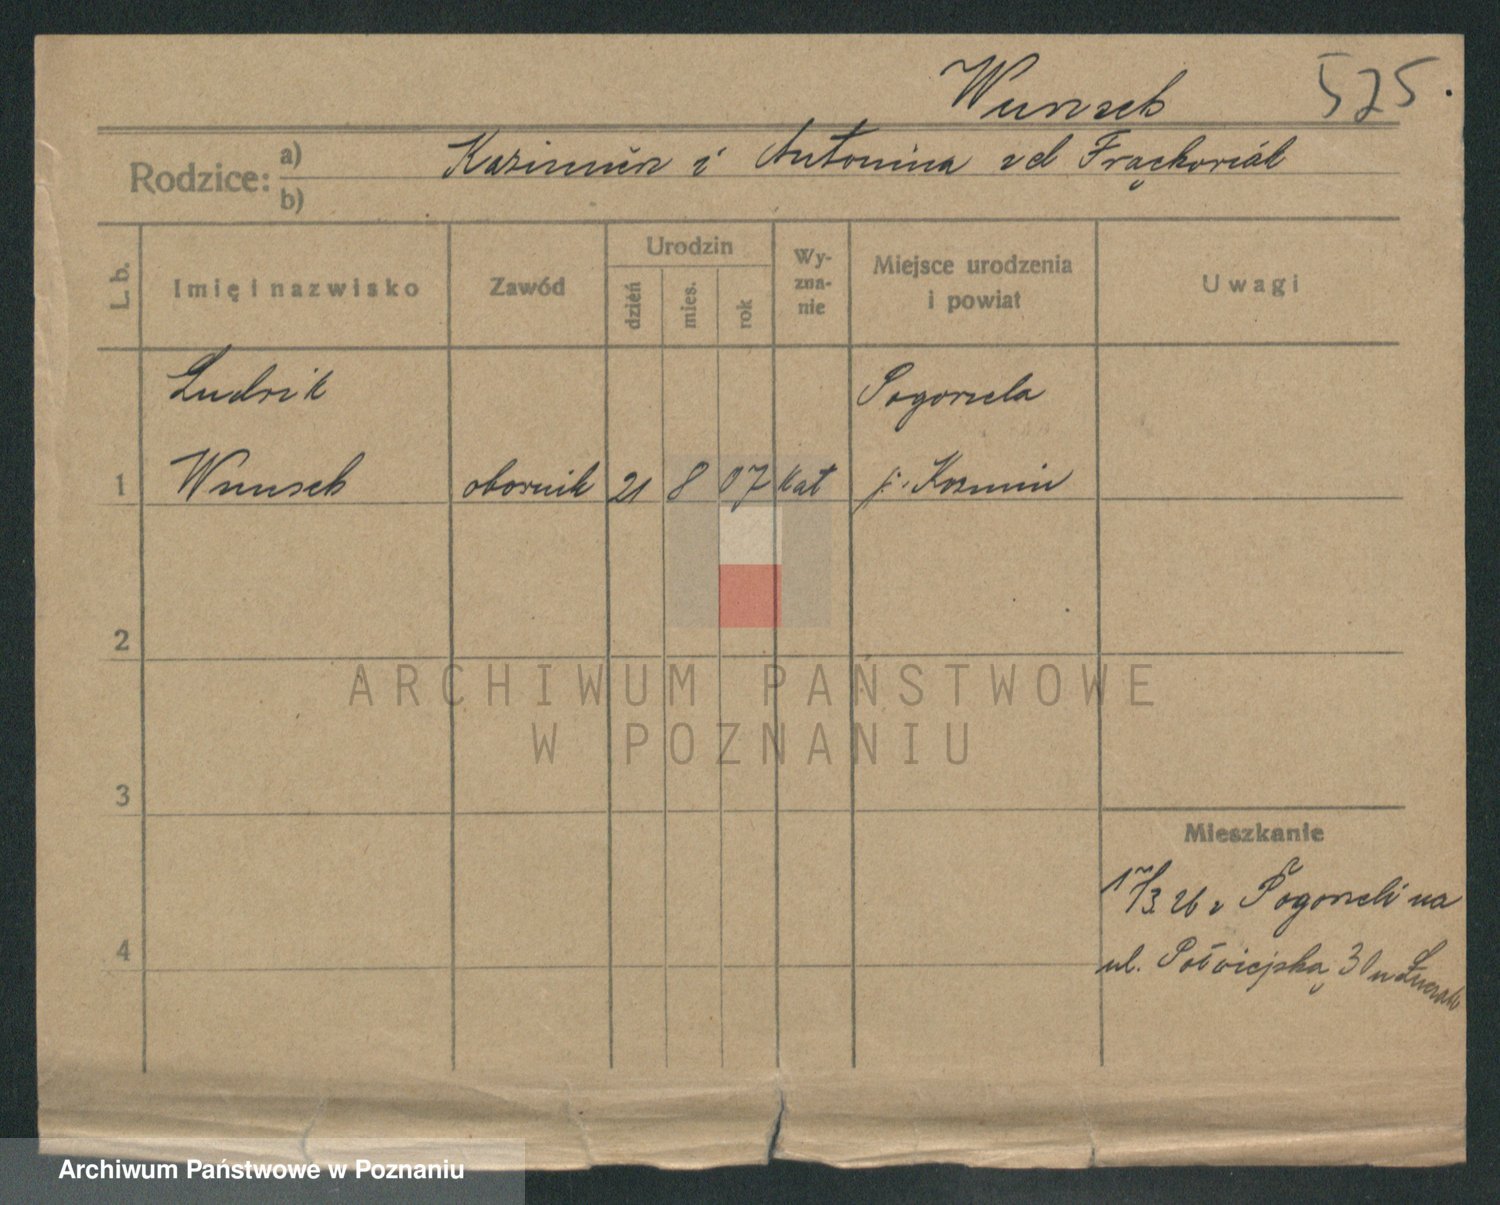 Wunsch 525.
Rodzice: a) Kazimierz i Antonina zd Frąckowiak
b)
L. b.
Imię i nazwisko
Zawód
Urodzin
dzień
mies.
rok
Wy-
zna-
nie
Miejsce urodzenia
i powiat
Uwagi
Ludwik Pogorzela
1 Wunsch obornik 21 8 07 Kat p. Kozmin
2
ARCHIWUM PAŃSTWOWE
W POZNANIU
3
Mieszkanie
17/3. 26 z Pogorzeli na
4
ul. Półwiejską 30 u
Archiwum Państwowe w Poznaniu